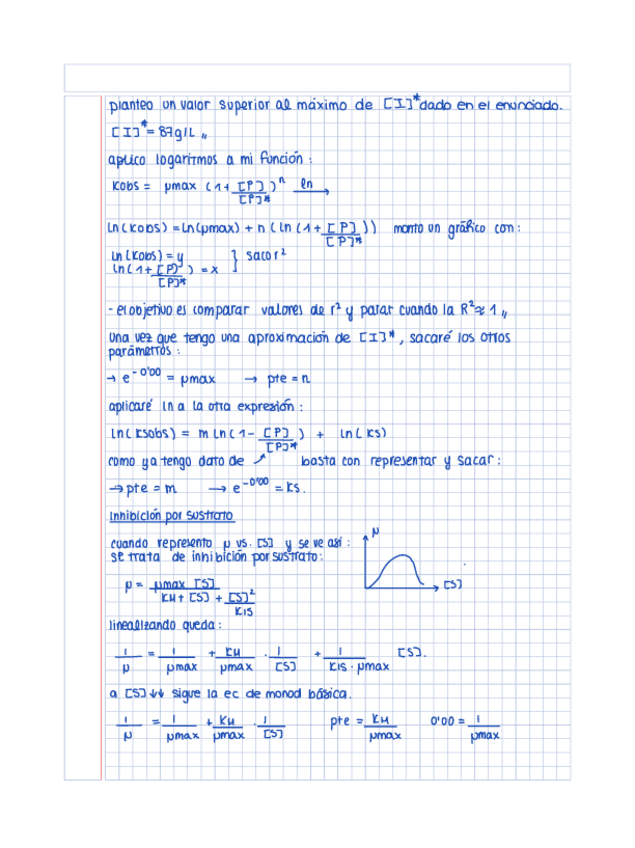 planteo un valor superior al máximo de [I]* dado en el enunciado.
[I]* = 87g/L
aplico logaritmos a mi función:
Kobs = μmax (1+ [P]/[P]*)^n ln→
ln(Kobs) = ln(μmax) + n (ln(1+ [P]/[P]*)) monto un gráfico con:
ln(Kobs) = y } sacar r²
ln(1+ [P]/[P]*) = x
- el objetivo es comparar valores de r² y parar cuando la R² ≈ 1
una vez que tengo una aproximación de [I]*, sacaré los otros
parámetros:
→ e^-0'00 = μmax → pte = n
aplicaré ln a la otra expresión:
ln(Ksobs) = m ln(1- [P]/[P]*) + ln(Ks)
como ya tengo dato de ↗ basta con representar y sacar:
→ pte = m → e^-0'00 = Ks.
Inhibición por sustrato
cuando represento μ vs. [S] y se ve así:
se trata de inhibición por sustrato:
μ
[S]
μ = μmax [S] / (KM + [S] + [S]²/KIS)
linealizando queda:
1/μ = 1/μmax + KM/μmax · 1/[S] + 1/(KIS · μmax) [S].
a [S]↓↓ sigue la ec de monod básica.
1/μ = 1/μmax + KM/μmax · 1/[S] pte = KM/μmax 0'00 = 1/μmax